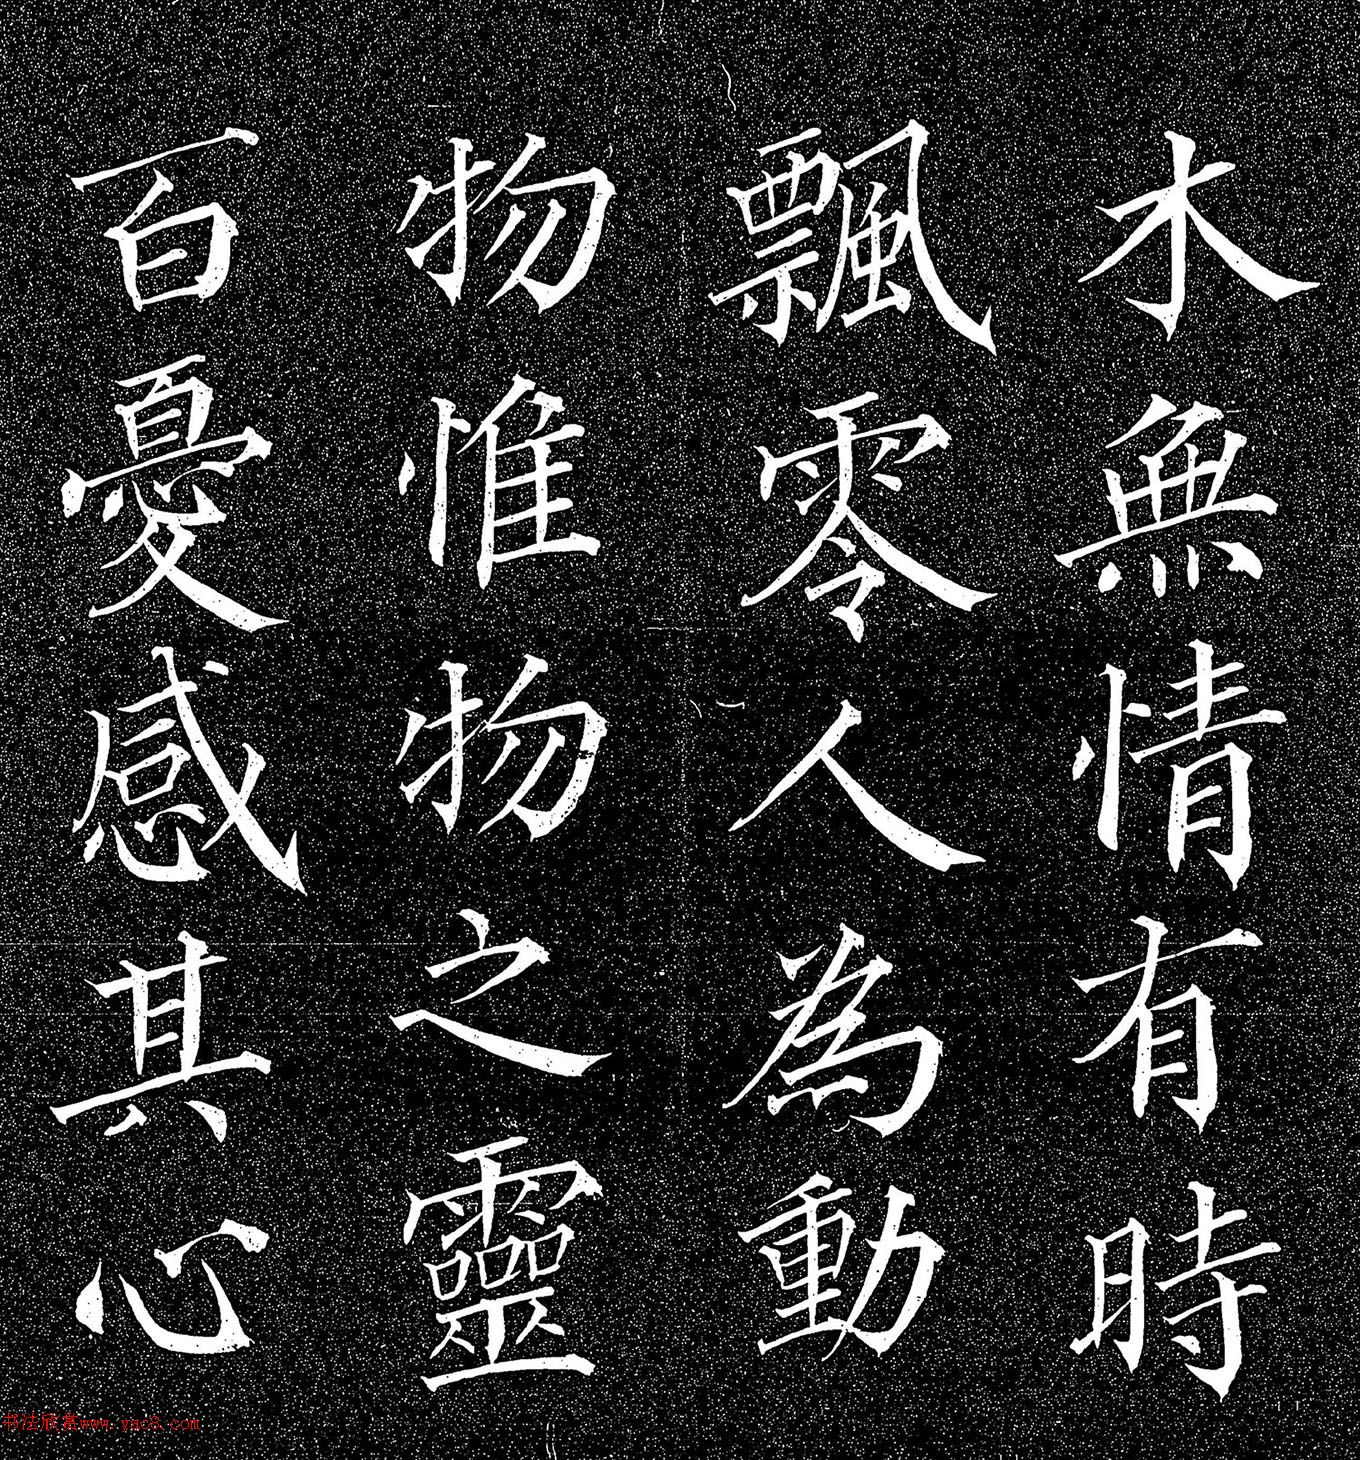 木無情有時
飄零人為動
物惟物之靈
百憂感其心
书法欣赏www.yac8.com